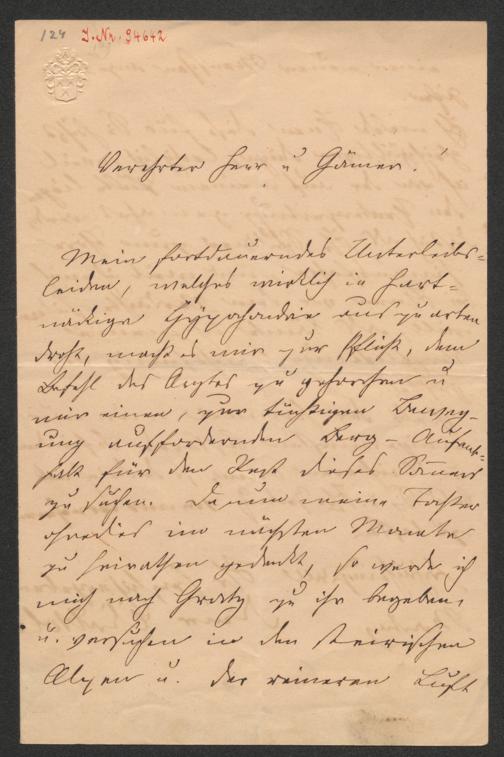 124 J. Nr. 94642
Verehrter Herr u Gönner!
Mein fortdauerndes Unterleibs-
leiden, welches wirklich in hart-
näkige Hypochondrie auszuarten
droht, macht es mir zur Pflicht, dem
Befehl des Arztes zu gehorchen u
mir einen, zur tüchtigen Beweg-
ung auffordernden Berg-Aufent-
halt für den Rest dieses Somers
zu suchen. Da nun meine Tochter
ohnedies im nächsten Monate
zu heirathen gedenkt, so werde ich
mich nach Gratz zu ihr begeben,
u. versuchen in den steirischen
Alpen u. der reineren Luft